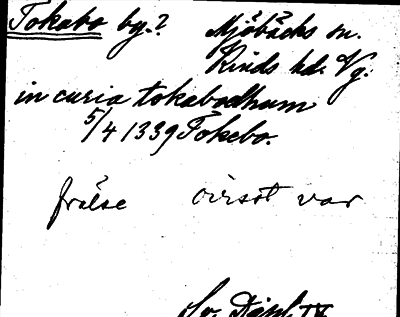 Tokabo by.? Mjöbäcks sn.
Kinds hd. Vg.
in curia tokabodhum
5/4 1339 Tokebo.
frälse ovisst var
Sv. Dipl. IV